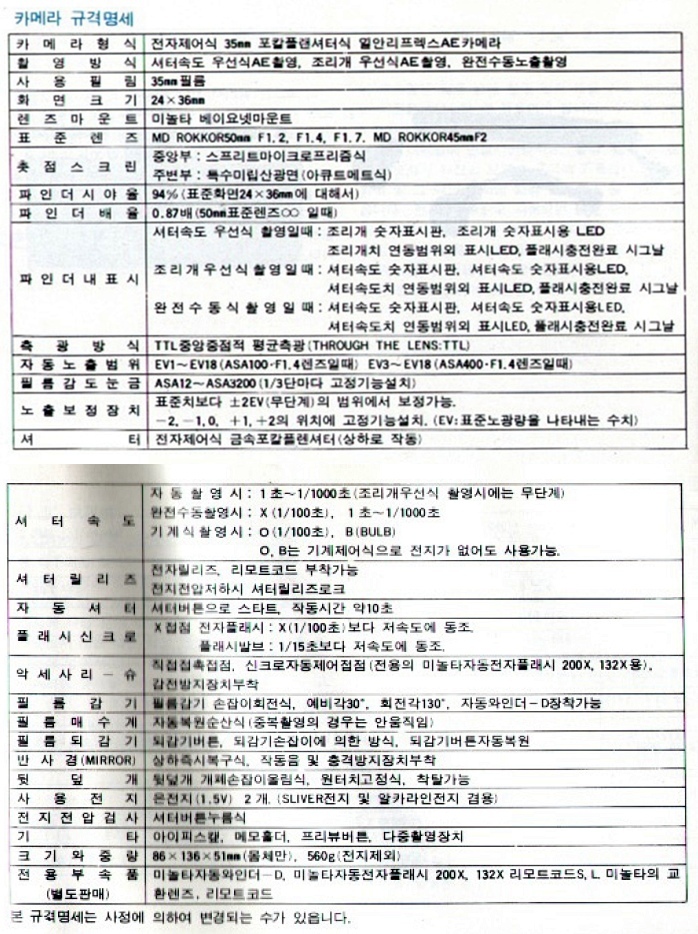 카메라 규격명세
카 메 라 형 식 전자제어식 35mm 포칼플랜셔터식 일안리프렉스AE카메라
촬 영 방 식 셔터속도 우선식AE촬영, 조리개 우선식AE촬영, 완전수동노출촬영
사 용 필 림 35mm 필름
화 면 크 기 24×36mm
렌 즈 마 운 트 미놀타 베이요넷마운트
표 준 렌 즈 MD ROKKOR50mm F1.2, F1.4, F1.7. MD ROKKOR45mmF2
촛 점 스 크 린 중앙부 : 스프리트마이크로프리즘식
주변부 : 특수미립산광면(아큐트메트식)
파 인 더 시 야 율 94%(표준화면24×36mm에 대해서)
파 인 더 배 율 0.87배(50mm표준렌즈○○ 일때)
파 인 더 내 표 시 셔터속도 우선식 촬영일때 : 조리개 숫자표시판, 조리개 숫자표시용 LED
조리개치 연동범위외 표시LED, 플래시충전완료 시그날
조리개우선식촬영일때 : 셔터속도 숫자표시판, 셔터속도 숫자표시용LED,
셔터속도치 연동범위외 표시LED, 플래시충전완료 시그날
완전수동식촬영일때 : 셔터속도 숫자표시판, 셔터속도 숫자표시용LED,
셔터속도치 연동범위외 표시LED, 플래시충전완료 시그날
측 광 방 식 TTL중앙중점적 평균측광(THROUGH THE LENS:TTL)
자 동 노 출 범 위 EV1~EV18(ASA100·F1.4렌즈일때) EV3~EV18(ASA400·F1.4렌즈일때)
필 름 감 도 눈 금 ASA12~ASA3200(1/3단마다 고정기능설치)
노 출 보 정 장 치 표준치보다 ±2EV(무단계)의 범위에서 보정가능.
-2, -1, 0, +1, +2의 위치에 고정기능설치. (EV:표준노광량을 나타내는 수치)
셔 터 전자제어식 금속포칼플렌셔터(상하로 작동)
셔 터 속 도 자 동 촬 영 시 : 1초~1/1000초(조리개우선식 촬영시에는 무단계)
완전수동촬영시 : X(1/100초), 1초~1/1000초
기계식촬영시 : O(1/100초), B(BULB)
O, B는 기계제어식으로 전지가 없어도 사용가능.
셔 터 릴 리 즈 전자릴리즈, 리모트코드 부착가능
전지전압저하시 셔터릴리즈로크
자 동 셔 터 셔터버튼으로 스타트, 작동시간 약10초
플 래 시 신 크 로 X접점 전자플래시 : X(1/100초)보다 저속도에 동조.
플래시발브 : 1/15초보다 저속도에 동조.
악 세 사 리 - 슈 직접접촉접점, 신크로자동제어접점(전용의 미놀타자동전자플래시 200X, 132X용),
감전방지장치부착
필 름 감 기 필름감기 손잡이회전식, 예비각30°, 회전각130°, 자동와인더-D장착가능
필 름 매 수 계 자동복원순산식(중복촬영의 경우는 안움직임)
필 름 되 감 기 되감기버튼, 되감기손잡이에 의한 방식, 되감기버튼자동복원
반 사 경(MIRROR) 상하즉시복구식, 작동음 및 충격방지장치부착
뒷 덮 개 뒷덮개 개폐손잡이올림식, 원터치고정식, 착탈가능
사 용 전 지 은전지(1.5V) 2개. (SLIVER전지 및 알카라인전지 겸용)
전 지 전 압 검 사 셔터버튼누름식
기 타 아이피스캪, 메모홀더, 프리뷰버튼, 다중촬영장치
크 기 와 중 량 86×136×51mm(몸체만), 560g(전지제외)
전 용 부 속 품 미놀타자동와인더-D, 미놀타자동전자플래시 200X, 132X 리모트코드S, L 미놀타의 교
(별도판매) 환렌즈, 리모트코드
본 규격명세는 사정에 의하여 변경되는 수가 있읍니다.